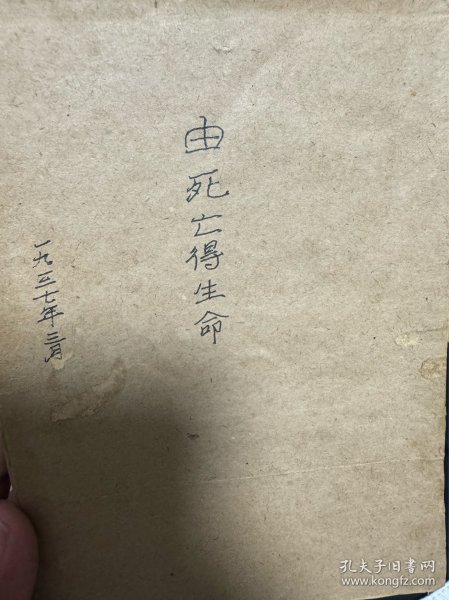 由死亡得生命
一九三七年三月
孔夫子旧书网
www.kongfz.com